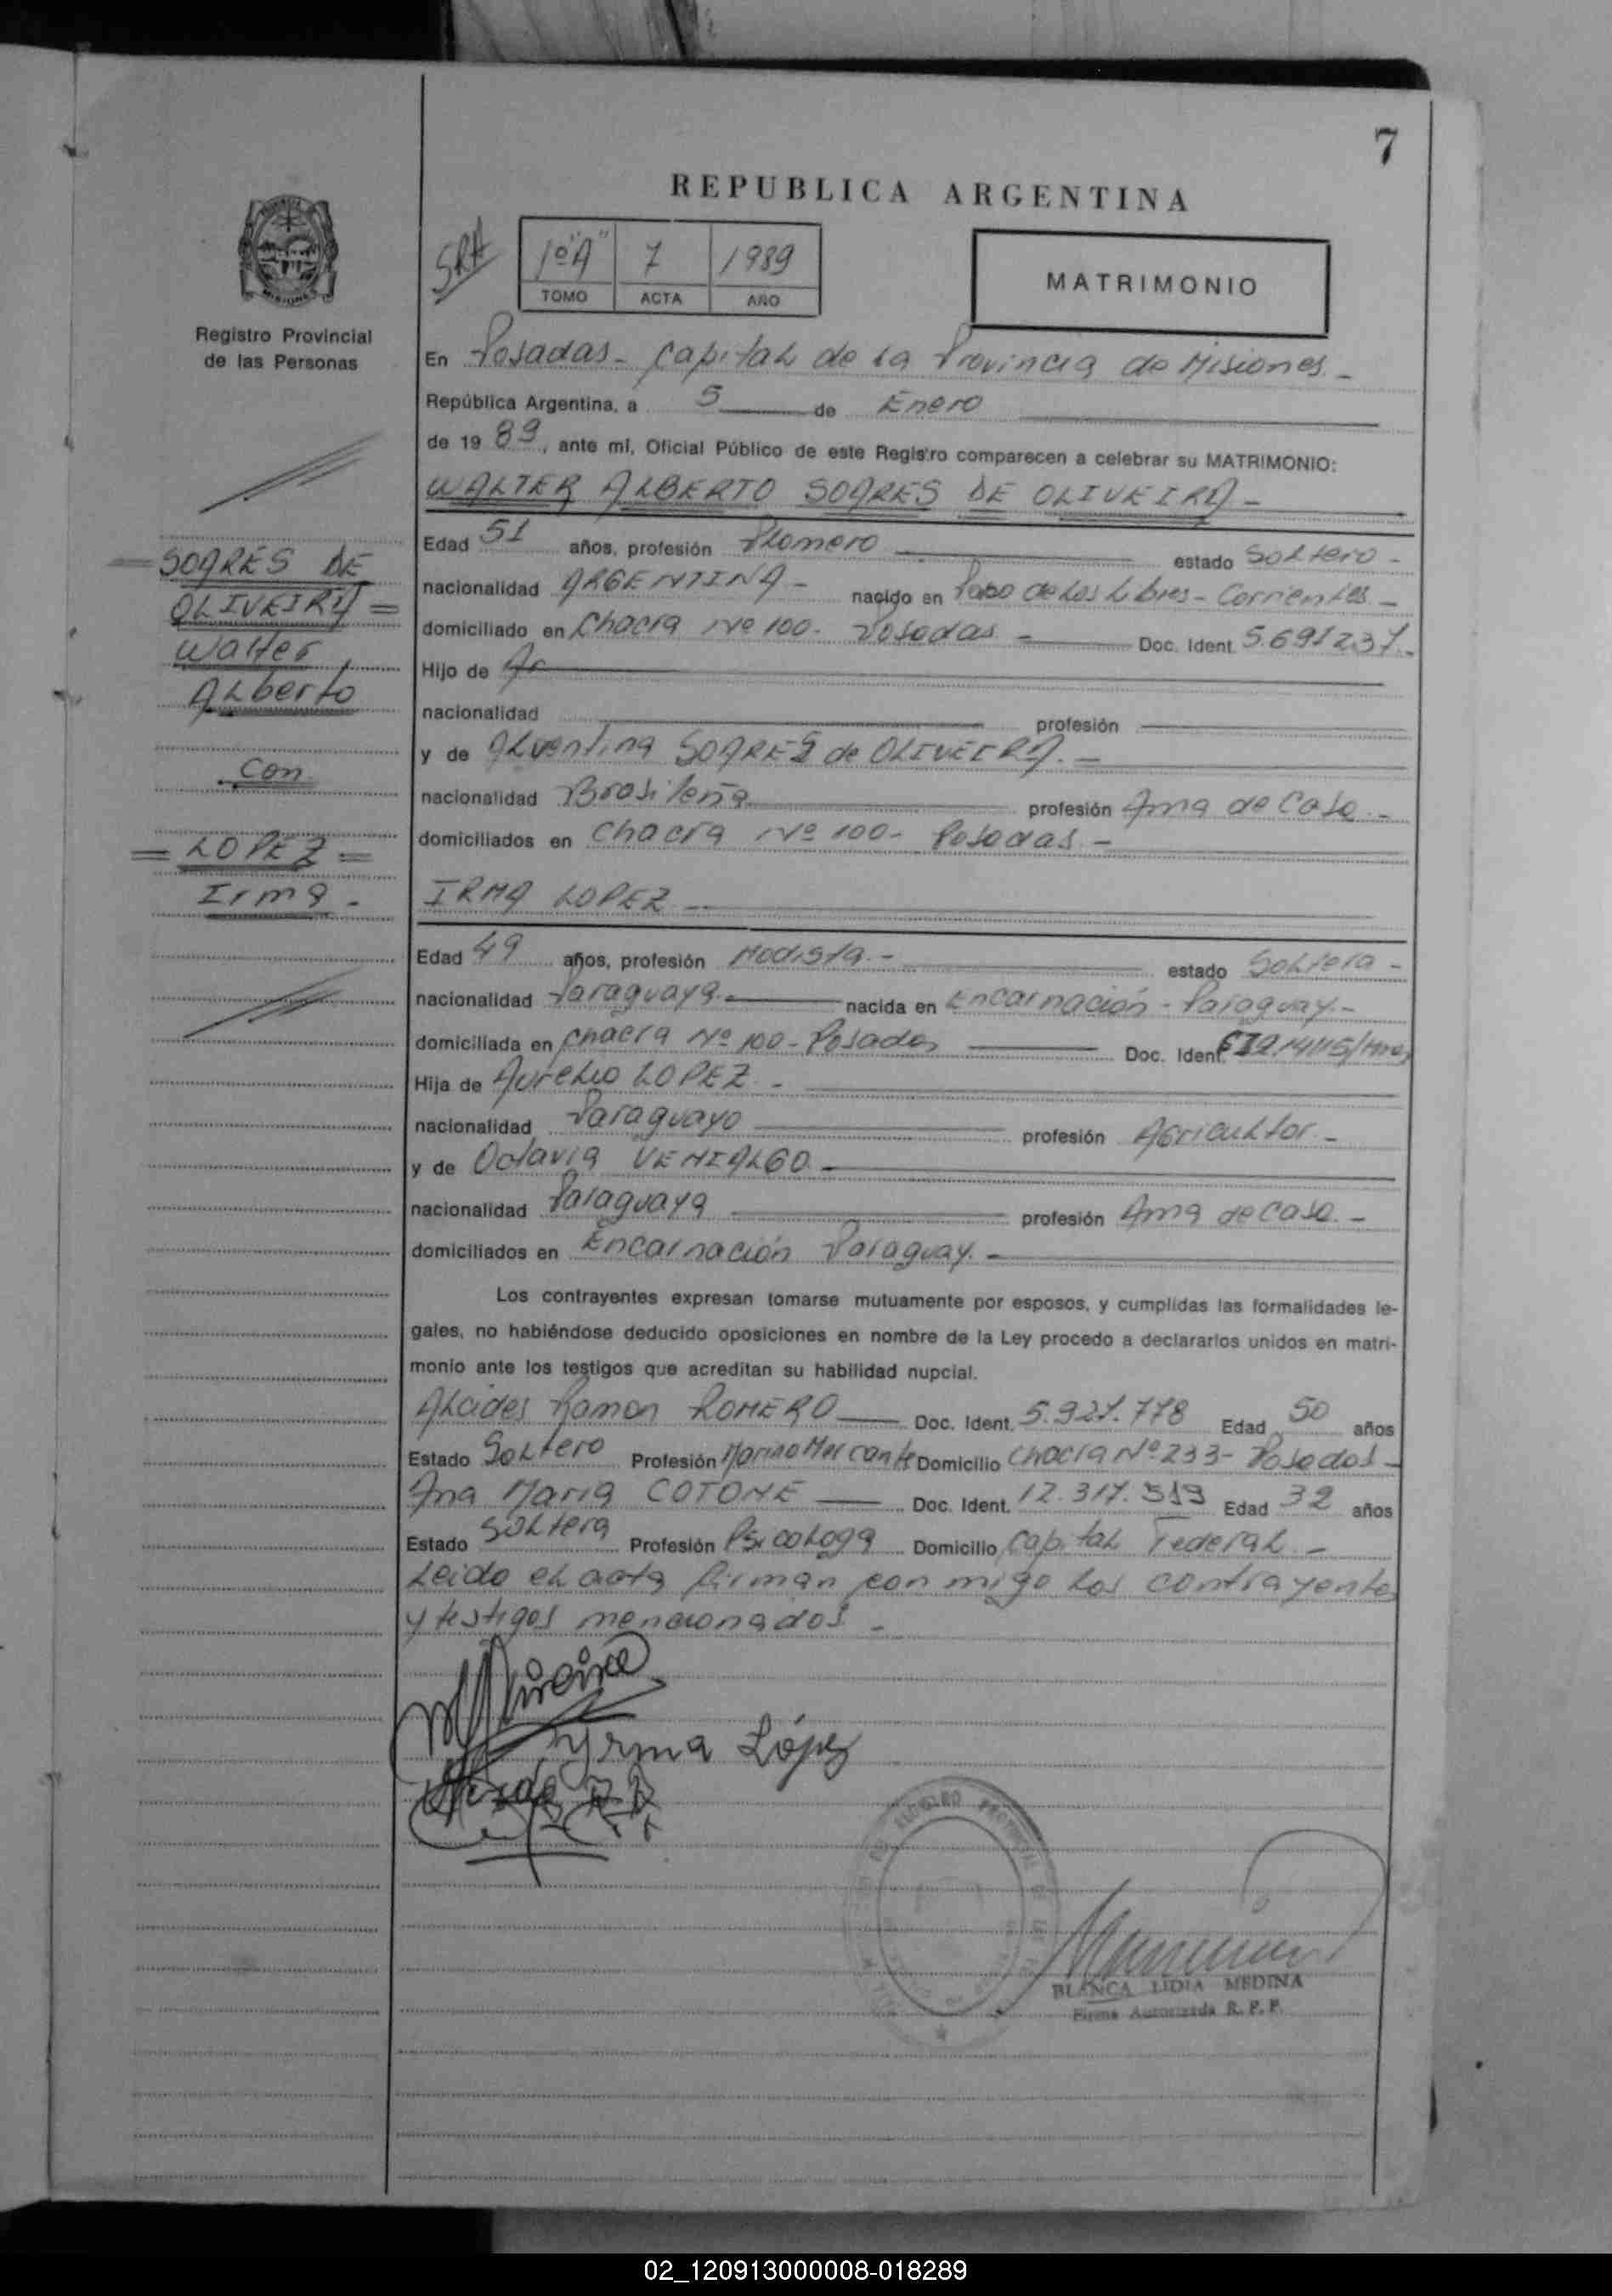 7
REPUBLICA ARGENTINA
SRA
1º "A" 7 1989
TOMO ACTA AÑO
MATRIMONIO
Registro Provincial
de las Personas
En Posadas - Capital de la Provincia de Misiones -
República Argentina, a 5 de Enero
de 19 89, ante mí, Oficial Público de este Registro comparecen a celebrar su MATRIMONIO:
WALTER ALBERTO SOARES DE OLIVEIRA -
Edad 51 años, profesión Plomero estado Soltero -
nacionalidad ARGENTINA - nacido en Paso de los Libres - Corrientes -
domiciliado en Chacra Nº 100 - Posadas - Doc. Ident. 5.691.237 -
Hijo de
nacionalidad profesión
y de Alventina SOARES de OLIVEIRA. -
nacionalidad Brasileña profesión Ama de Casa. -
domiciliados en Chacra Nº 100 - Posadas. -
= SOARES DE
OLIVEIRA =
Walter
Alberto
Con
= LOPEZ =
Irma -
IRMA LOPEZ -
Edad 49 años, profesión Modista. - estado Soltera -
nacionalidad Paraguaya. nacida en Encarnación - Paraguay. -
domiciliada en Chacra Nº 100 - Posadas Doc. Ident.
Hija de Aurelio LOPEZ. -
nacionalidad Paraguayo profesión Agricultor. -
y de Octavia VENIALGO. -
nacionalidad Paraguaya profesión Ama de Casa. -
domiciliados en Encarnación Paraguay. -
Los contrayentes expresan tomarse mutuamente por esposos, y cumplidas las formalidades le-
gales, no habiéndose deducido oposiciones en nombre de la Ley procedo a declararlos unidos en matri-
monio ante los testigos que acreditan su habilidad nupcial.
Alcides Ramon ROMERO Doc. Ident. 5.927.778 Edad 50 años
Estado Soltero Profesión Marino Mercante Domicilio Chacra Nº 233 - Posadas -
Ana Maria COTONE Doc. Ident. 12.317.519 Edad 32 años
Estado Soltera Profesión Psicologa Domicilio Capital Federal. -
Leido el acta firman con migo los contrayentes
y testigos mencionados. -
Yrma López
BLANCA LIDIA MEDINA
Firma Autorizada R. P. P.
02_120913000008-018289